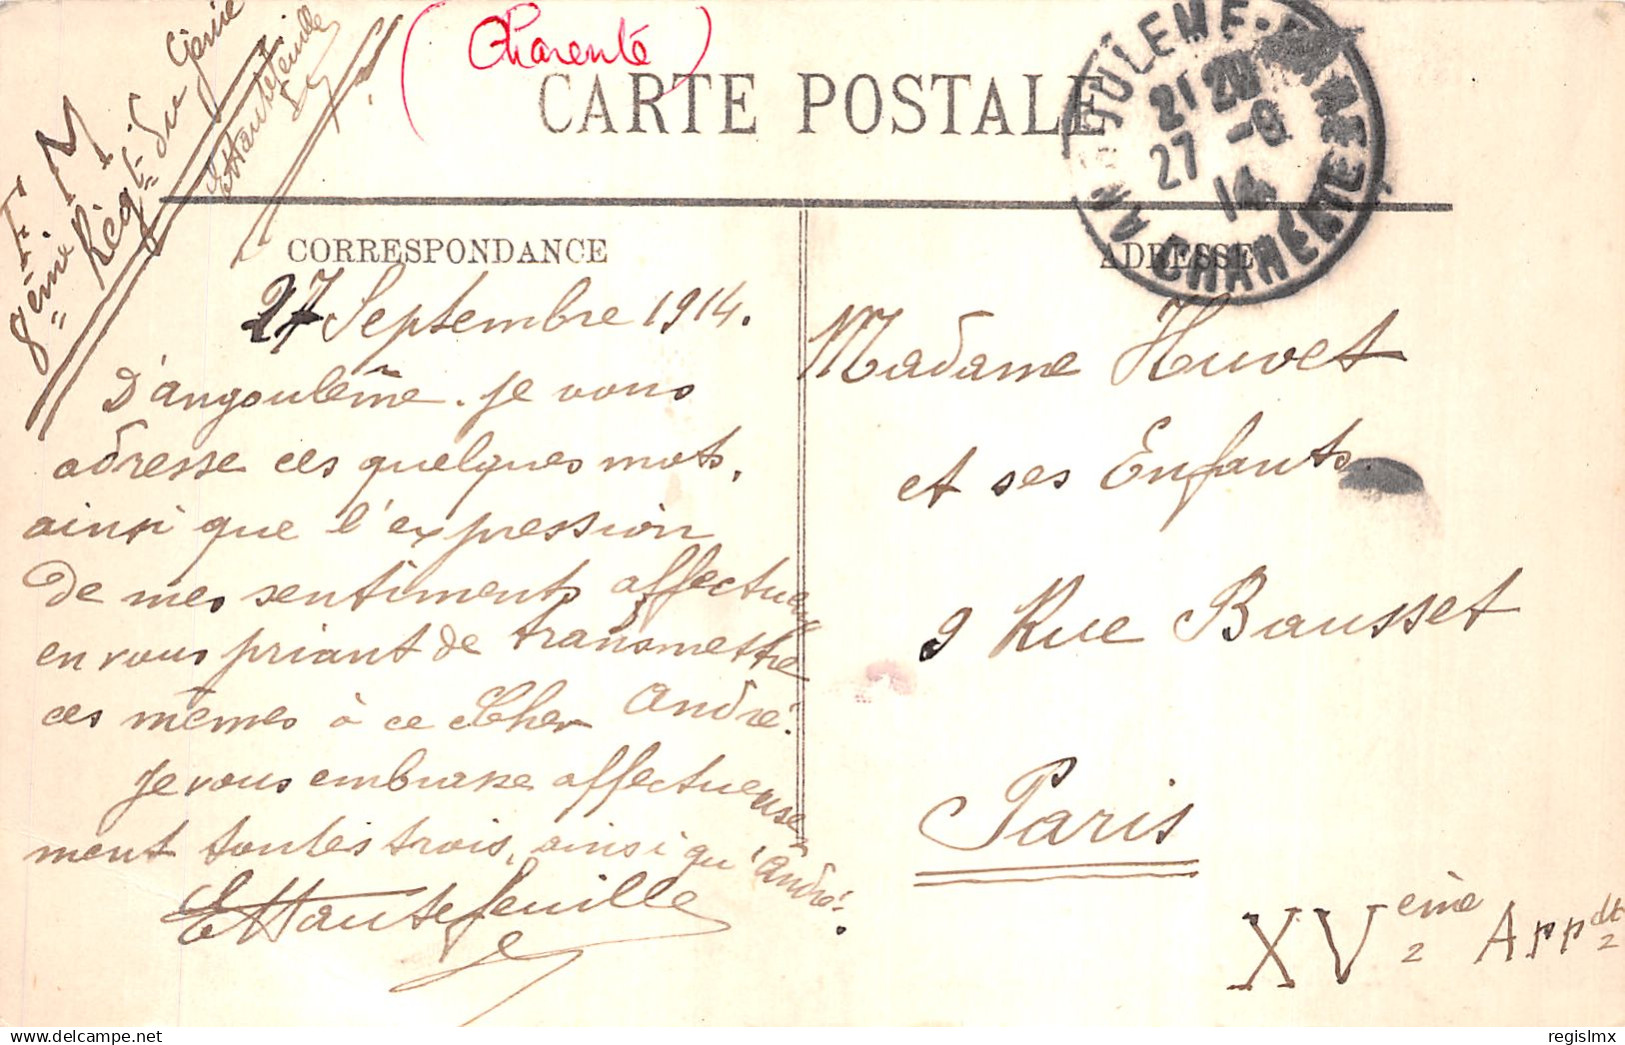 (Charente)
CARTE POSTALE
F. M.
8ème Règt. du Génie
EHautefeuille
ANGOULEME-GARE
21 20
27 -9
14
CHARENTE
CORRESPONDANCE
ADRESSE
27 Septembre 1914.
D'angoulême. je vous
adresse ces quelques mots,
ainsi que l'expression
de mes sentiments affectueux
en vous priant de transmettre
ces mêmes à ce Cher André.
je vous embrasse affectueuse
ment toutes trois, ainsi qu'André.
EHautefeuille
Madame Huvet
et ses Enfants.
9 Rue Bausset
Paris
XVème Arrdt
delcampe.net
regislmx